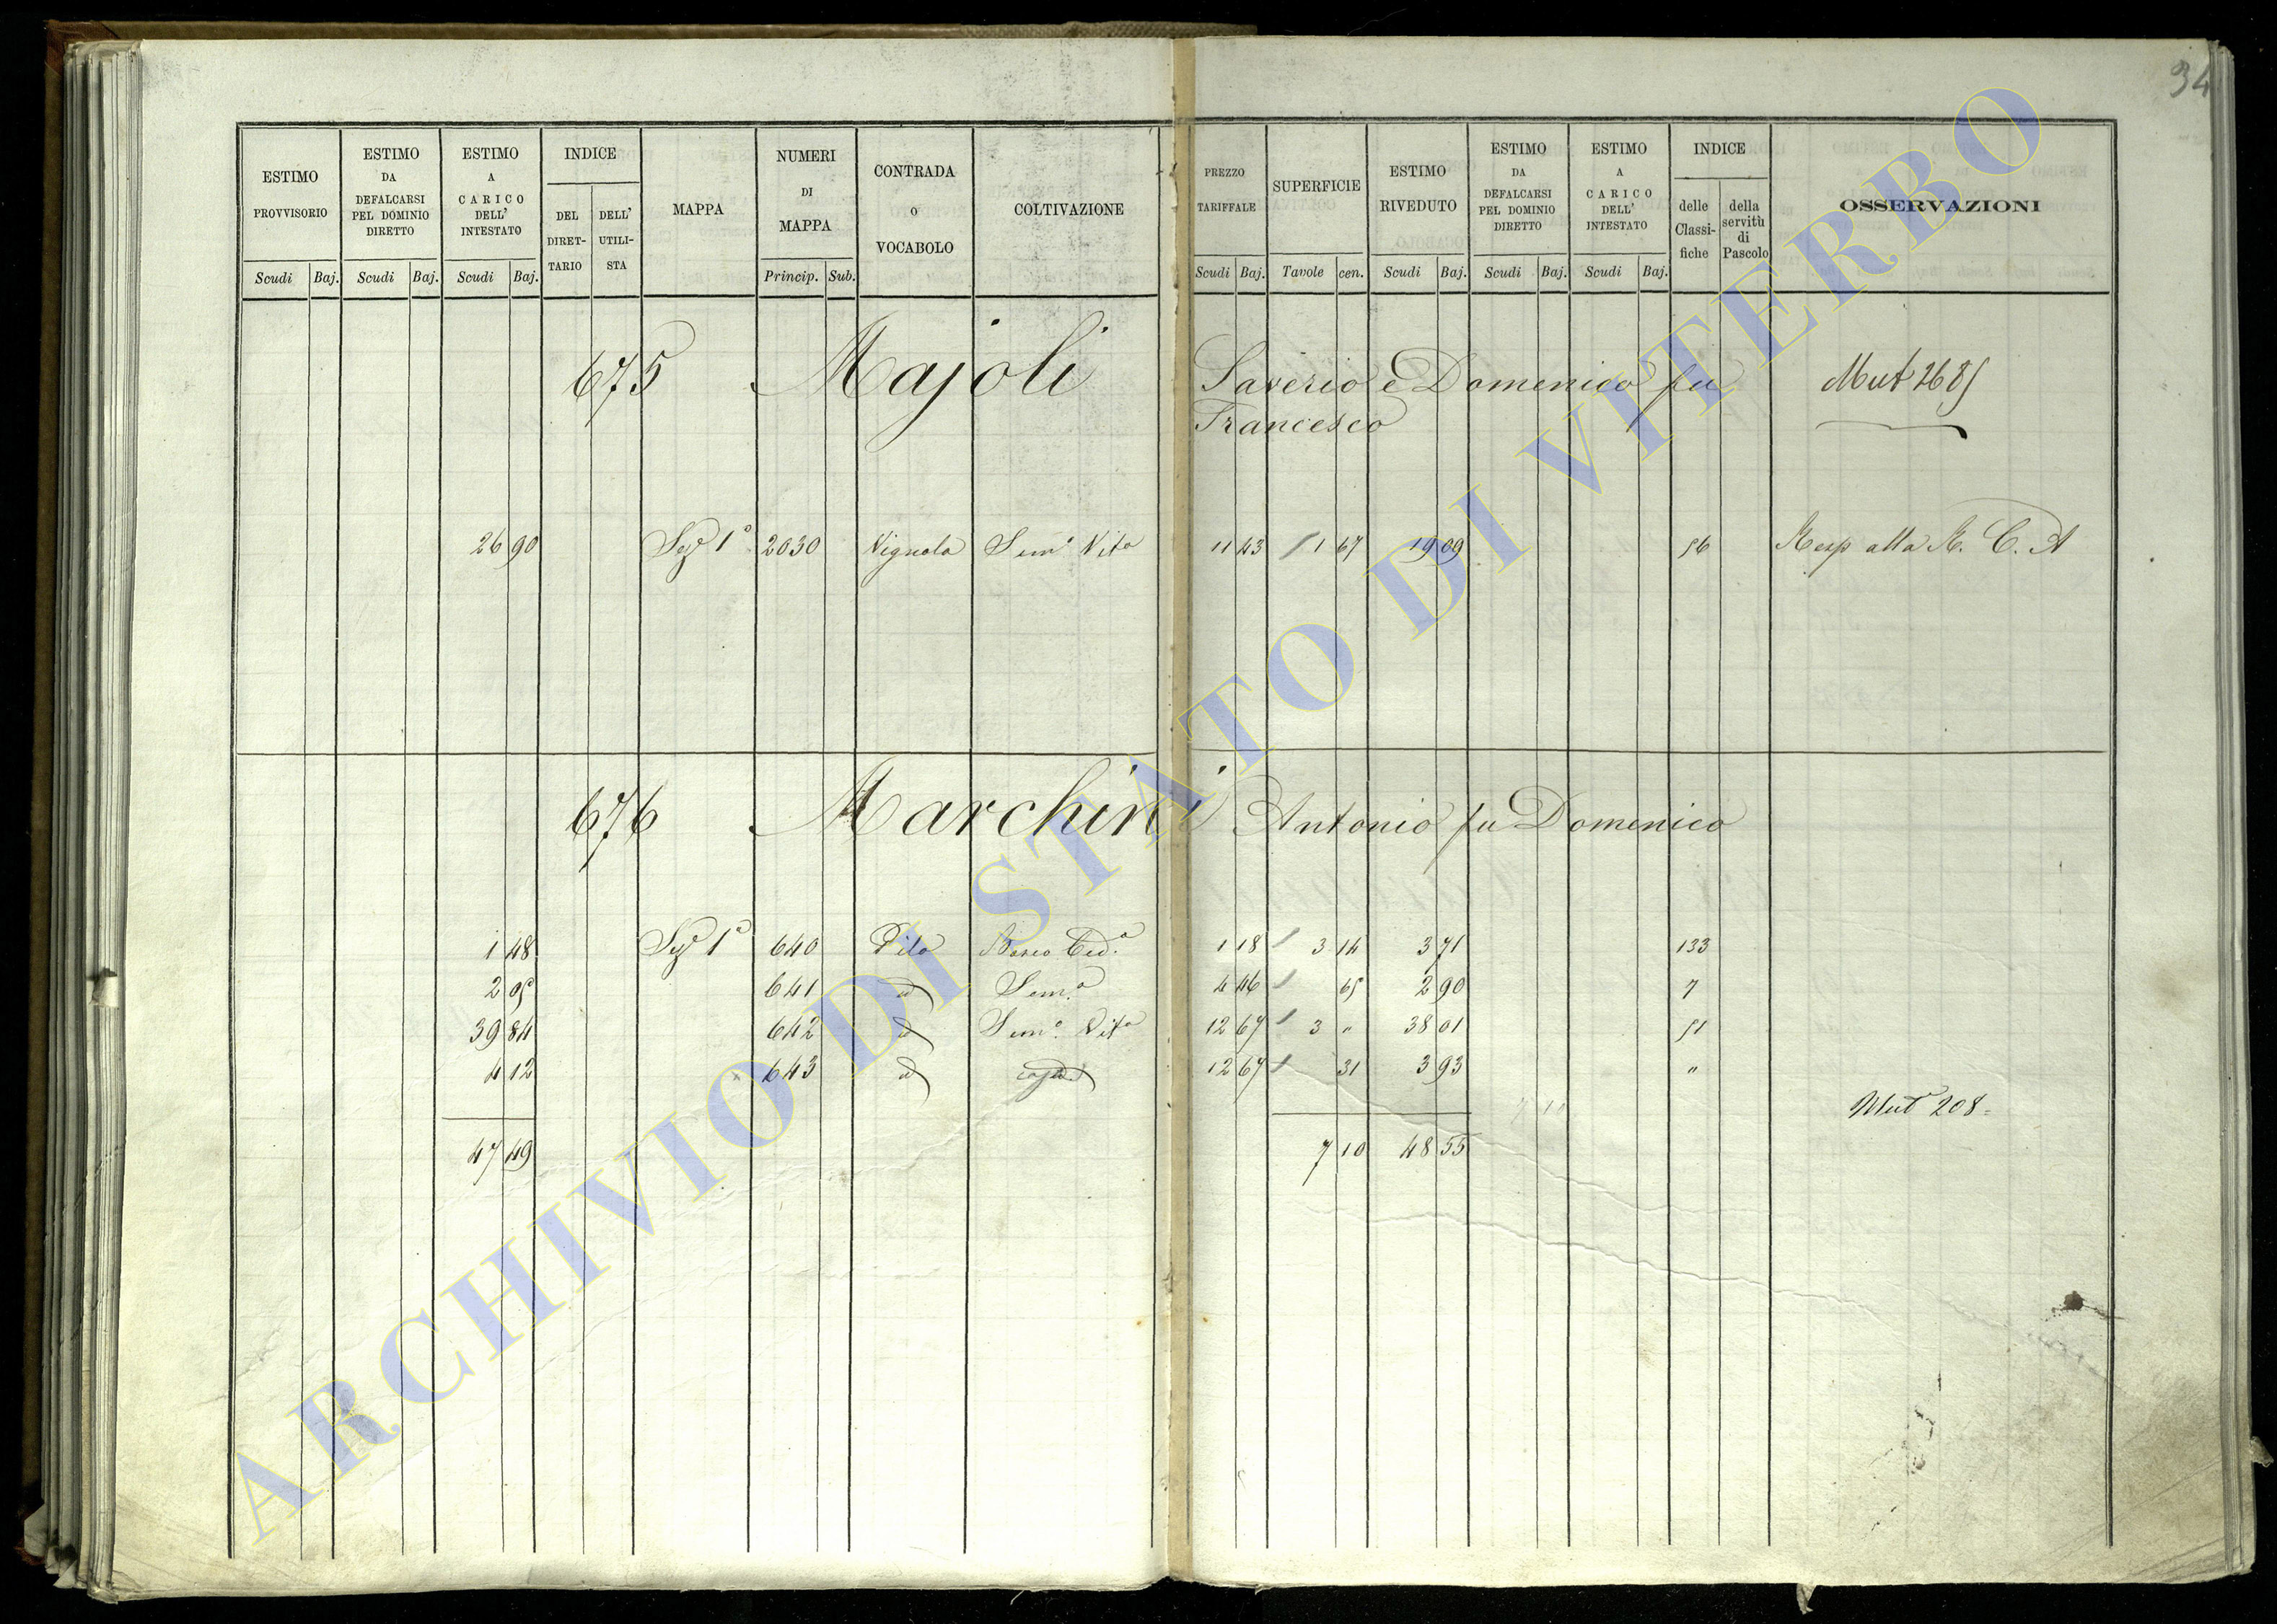 34
ESTIMO PROVVISORIO | ESTIMO DA DEFALCARSI PEL DOMINIO DIRETTO | ESTIMO A CARICO DELL' INTESTATO | INDICE DEL DIRET-TARIO | DELL' UTILI-STA | MAPPA | NUMERI DI MAPPA | CONTRADA O VOCABOLO | COLTIVAZIONE | PREZZO TARIFFALE | SUPERFICIE | ESTIMO RIVEDUTO | ESTIMO DA DEFALCARSI PEL DOMINIO DIRETTO | ESTIMO A CARICO DELL' INTESTATO | INDICE delle Classi-fiche | della servitù di Pascolo | OSSERVAZIONI
Scudi Baj. Scudi Baj. Scudi Baj. Princip. Sub. Scudi Baj. Tavole cen. Scudi Baj. Scudi Baj. Scudi Baj.
675 Majoli Saverio e Domenico fu Mut 2685
Francesco
26 90 Sez 1ª 2030 Vignola Semo Vito 11 43 1 67 19 09 56 Resp alla R. C. A
676 Marchini Antonio fu Domenico
1 48 Sez 1ª 640 Pila Bosco Ced.o 1 18 3 14 3 71 133
2 05 641 d Sem.o 4 46 65 2 90 7
39 84 642 d Semo. Vito 12 67 3 " 38 01 51
4 12 643 d 12 67 31 3 93 "
Mut 208
47 49 7 10 48 55
ARCHIVIO DI STATO DI VITERBO